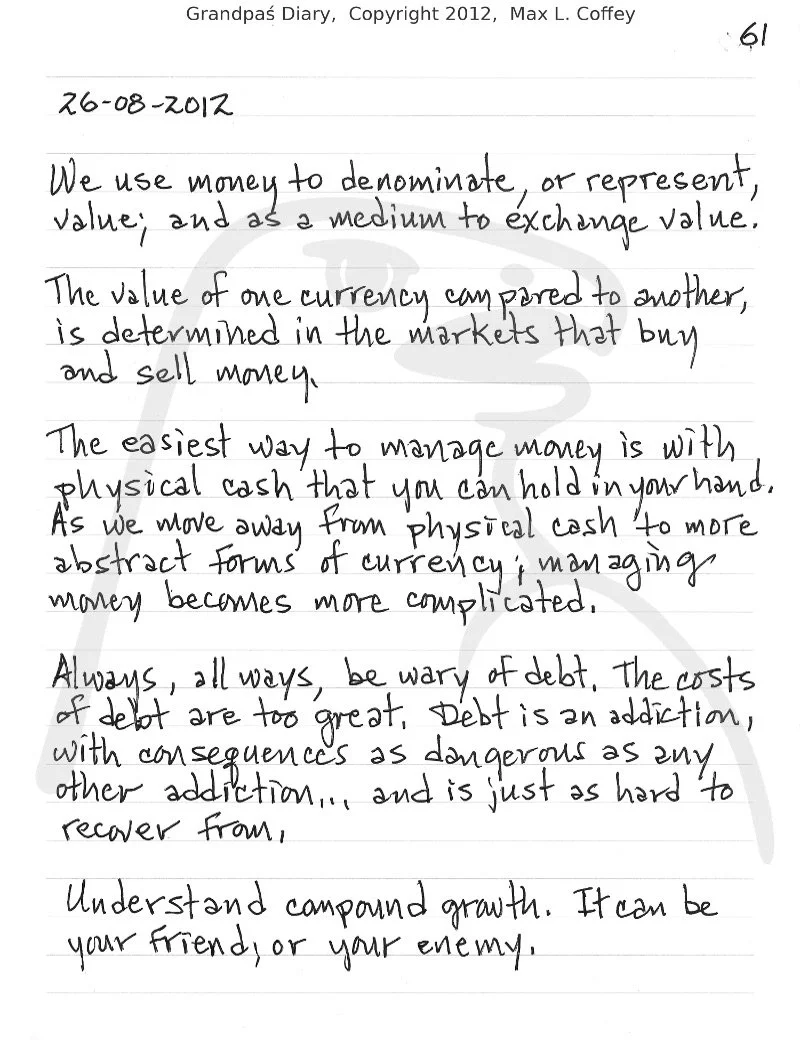 Grandpaś Diary, Copyright 2012, Max L. Coffey
61
26-08-2012
We use money to denominate, or represent,
value; and as a medium to exchange value.
The value of one currency compared to another,
is determined in the markets that buy
and sell money.
The easiest way to manage money is with
physical cash that you can hold in your hand.
As we move away from physical cash to more
abstract forms of currency; managing
money becomes more complicated.
Always, all ways, be wary of debt. The costs
of debt are too great. Debt is an addiction,
with consequences as dangerous as any
other addiction... and is just as hard to
recover from.
Understand compound growth. It can be
your friend, or your enemy.